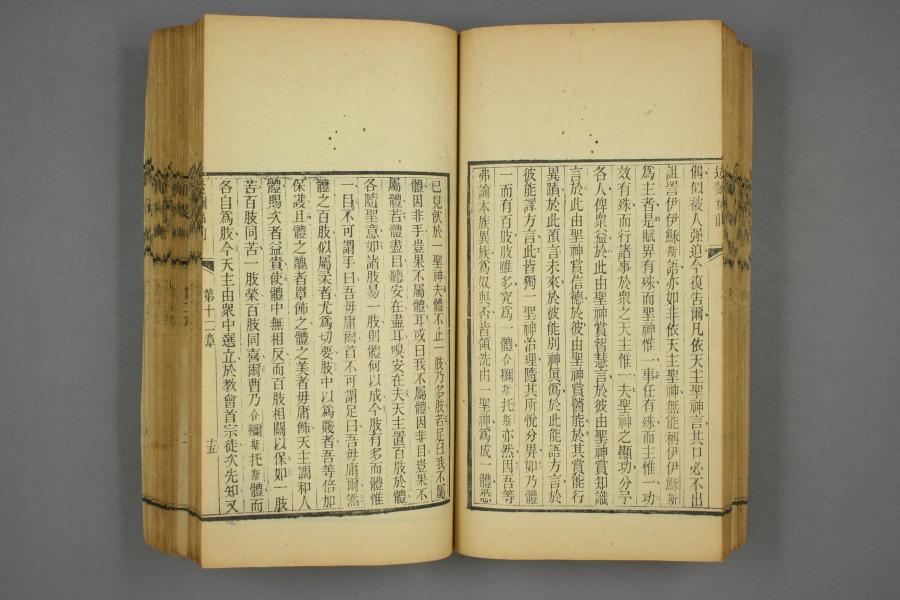 偶似被人強迫今復告爾凡依天主聖神言其口必不出
詛詈伊伊穌斯語亦如非依天主聖神無能稱伊伊穌斯
為主者是賦畀有殊而聖神惟一事任有殊而主惟一功
效有殊而行諸事於衆之天主惟一夫聖神之顯功分予
各人俾衆益於此由聖神賞智慧言於彼由聖神賞知識
言於此由聖神賞信德於彼由聖神賞醫能於其賞能行
異蹟於此預言未來於彼能別神眞僞於此能語方言於
彼能譯方言此皆獨一聖神治理隨其所悅分畀如乃體
一而有百肢肢雖多究為一體合穪斯托斯亦然因吾等
弗論本族異族為奴與否皆領洗由一聖神為成一體悉
已見飲於一聖神夫體不止一肢乃多肢若足曰我不屬
體因非手豈果不屬體耳或曰我不屬體因非目豈果不
屬體若體盡目聽安在盡耳嗅安在夫天主置百肢於體
各隨聖意如諸肢易一肢則體何以成今肢有多而體惟
一目不可謂手曰吾毋庸爾首不可謂足曰吾毋庸爾然
體之百肢似屬柔者尤為切要肢中以為賤者吾等倍加
保護且體之醜者覃飾之體之美者毋庸飾天主調和人
體賜欠者益貴使體中無相反而百肢相關以保如一肢
苦百肢同苦一肢榮百肢同喜爾曹乃合穪斯托斯體而
各自為肢今天主由衆中選立於教會首宗徒次先知又
第十二章